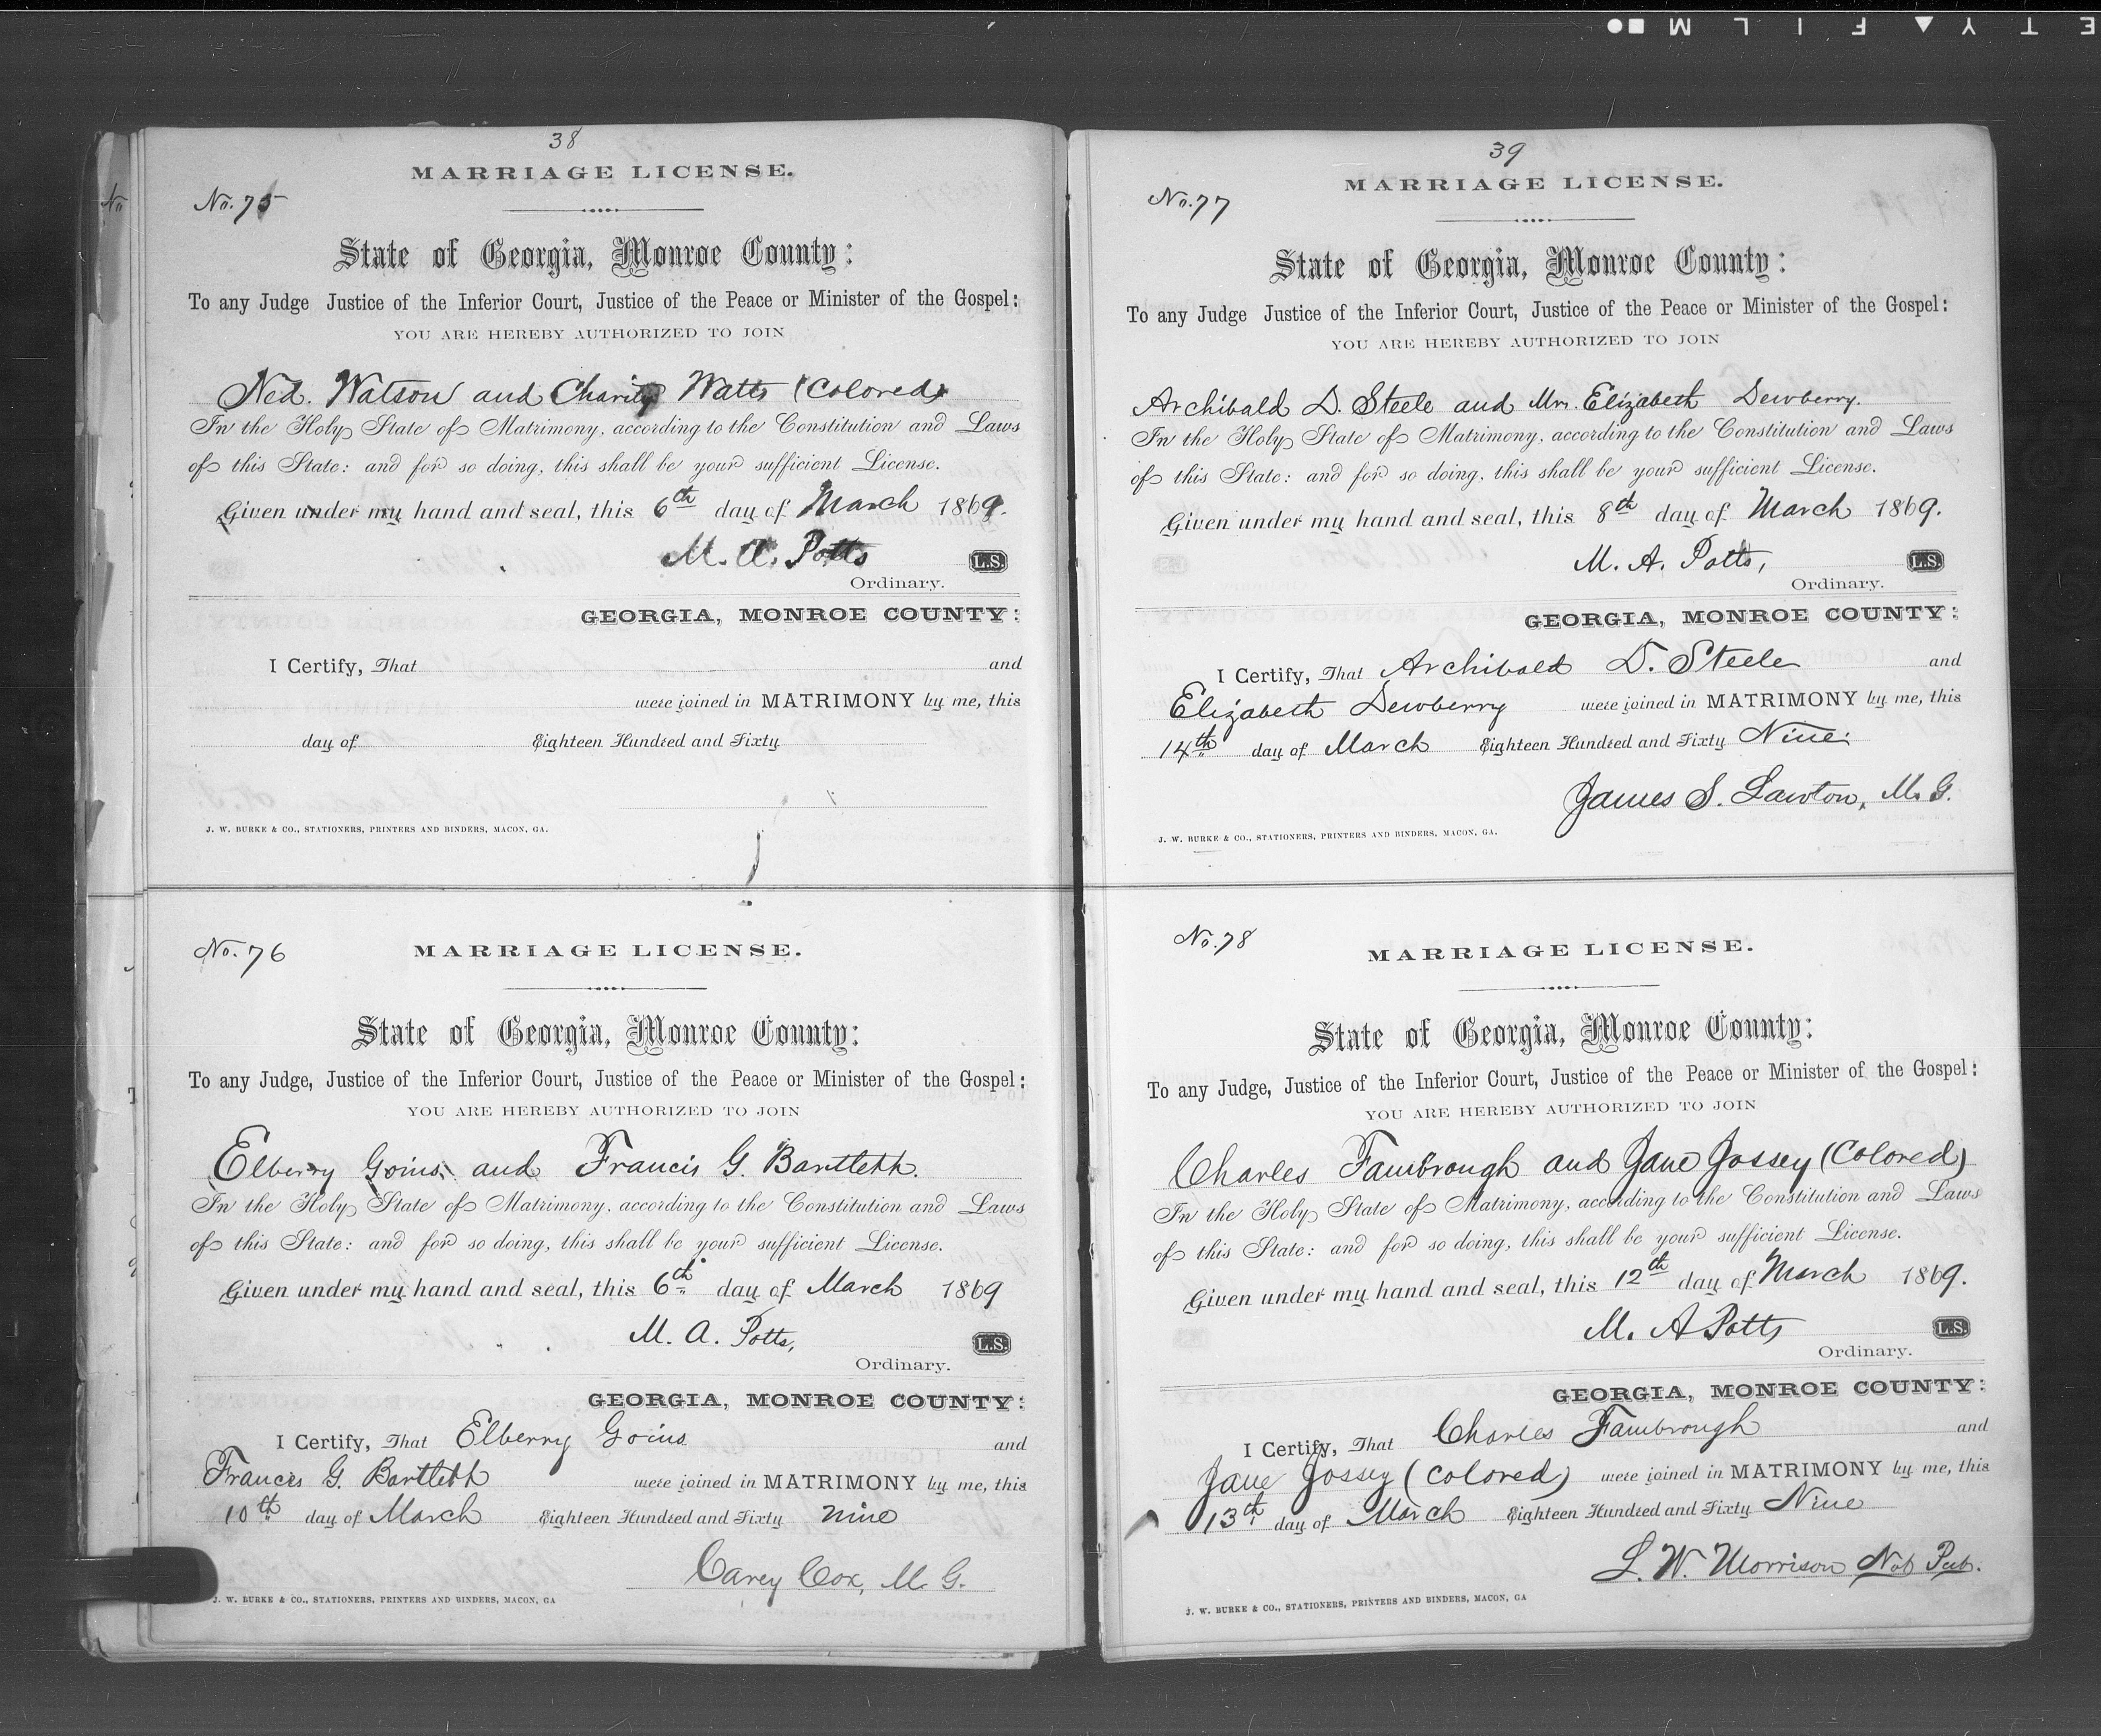 E T Y ▲ F I L M ■●
38
MARRIAGE LICENSE.
No. 75
State of Georgia, Monroe County:
To any Judge Justice of the Inferior Court, Justice of the Peace or Minister of the Gospel:
YOU ARE HEREBY AUTHORIZED TO JOIN
Ned. Watson and Charity Watts (Colored)
In the Holy State of Matrimony, according to the Constitution and Laws
of this State: and for so doing, this shall be your sufficient License.
Given under my hand and seal, this 6th day of March 1869.
M. A. Potts
L.S.
Ordinary.
GEORGIA, MONROE COUNTY:
I Certify, That and
were joined in MATRIMONY by me, this
day of Eighteen Hundred and Sixty
J. W. BURKE & CO., STATIONERS, PRINTERS AND BINDERS, MACON, GA.
No. 76
MARRIAGE LICENSE.
State of Georgia, Monroe County:
To any Judge, Justice of the Inferior Court, Justice of the Peace or Minister of the Gospel:
YOU ARE HEREBY AUTHORIZED TO JOIN
Elberry Goins and Francis G. Bartlett.
In the Holy State of Matrimony, according to the Constitution and Laws
of this State: and for so doing, this shall be your sufficient License.
Given under my hand and seal, this 6th day of March 1869
M. A. Potts,
L.S.
Ordinary.
GEORGIA, MONROE COUNTY:
I Certify, That Elberry Goins and
Francis G. Bartlett were joined in MATRIMONY by me, this
10th day of March Eighteen Hundred and Sixty nine
Carey Cox, M. G.
J. W. BURKE & CO., STATIONERS, PRINTERS AND BINDERS, MACON, GA
39
MARRIAGE LICENSE.
No. 77
State of Georgia, Monroe County:
To any Judge Justice of the Inferior Court, Justice of the Peace or Minister of the Gospel:
YOU ARE HEREBY AUTHORIZED TO JOIN
Archibald D. Steele and Mrs. Elizabeth Dewberry.
In the Holy State of Matrimony, according to the Constitution and Laws
of this State: and for so doing, this shall be your sufficient License.
Given under my hand and seal, this 8th day of March 1869.
M. A. Potts,
L.S.
Ordinary.
GEORGIA, MONROE COUNTY:
I Certify, That Archibald D. Steele and
Elizabeth Dewberry were joined in MATRIMONY by me, this
14th day of March Eighteen Hundred and Sixty Nine.
James S. Lawton, M. G.
J. W. BURKE & CO., STATIONERS, PRINTERS AND BINDERS, MACON, GA.
No. 78
MARRIAGE LICENSE.
State of Georgia, Monroe County:
To any Judge, Justice of the Inferior Court, Justice of the Peace or Minister of the Gospel:
YOU ARE HEREBY AUTHORIZED TO JOIN
Charles Fambrough and Jane Jossey (Colored)
In the Holy State of Matrimony, according to the Constitution and Laws
of this State: and for so doing, this shall be your sufficient License.
Given under my hand and seal, this 12th day of March 1869.
M. A Potts
L.S.
Ordinary.
GEORGIA, MONROE COUNTY:
I Certify, That Charles Fambrough and
Jane Jossey (Colored) were joined in MATRIMONY by me, this
13th day of March Eighteen Hundred and Sixty Nine
L. W. Morrison Not Pub.
J. W. BURKE & CO., STATIONERS, PRINTERS AND BINDERS, MACON, GA